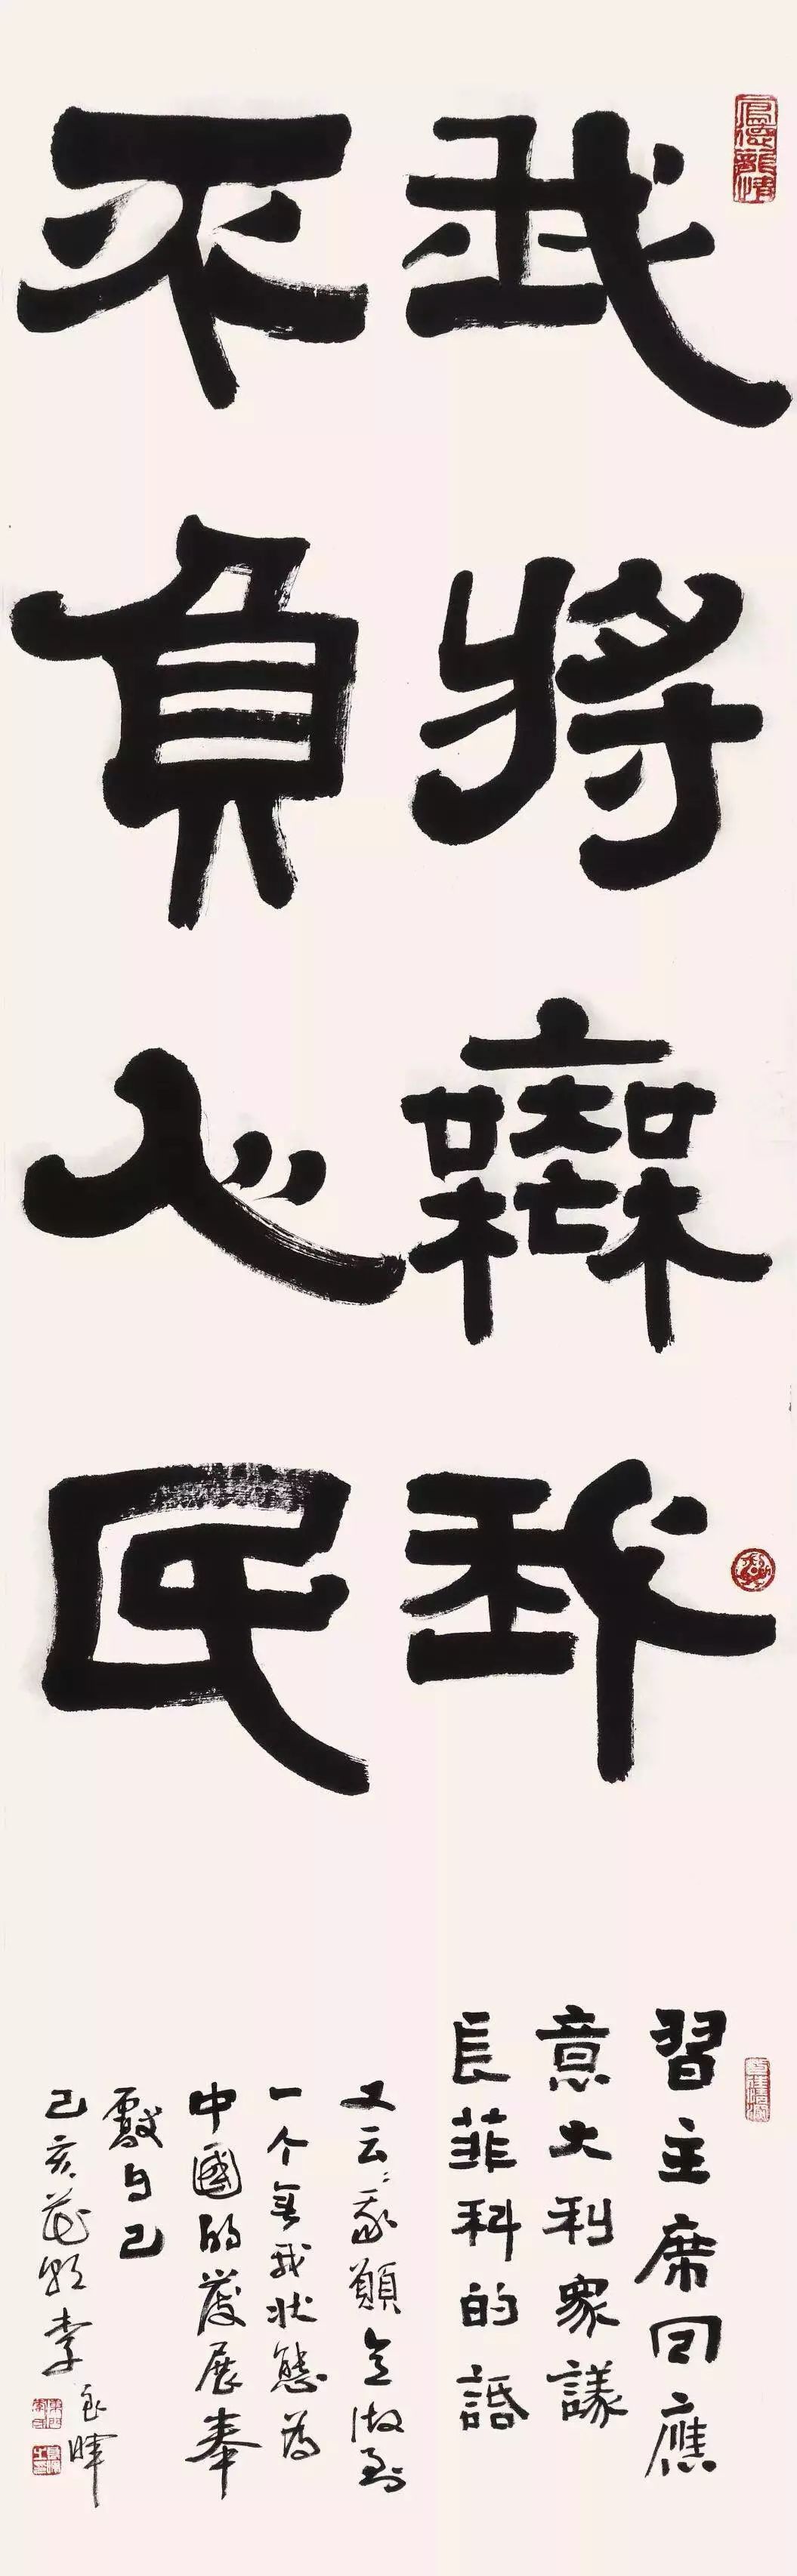 我將無我
不負人民
習主席回應
意大利眾議
長菲科的話
又云：我願意做到
一个無我狀態為
中國的發展奉
獻自己
己亥花朝李良暉